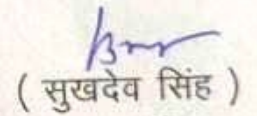 ( सुखदेव सिंह )